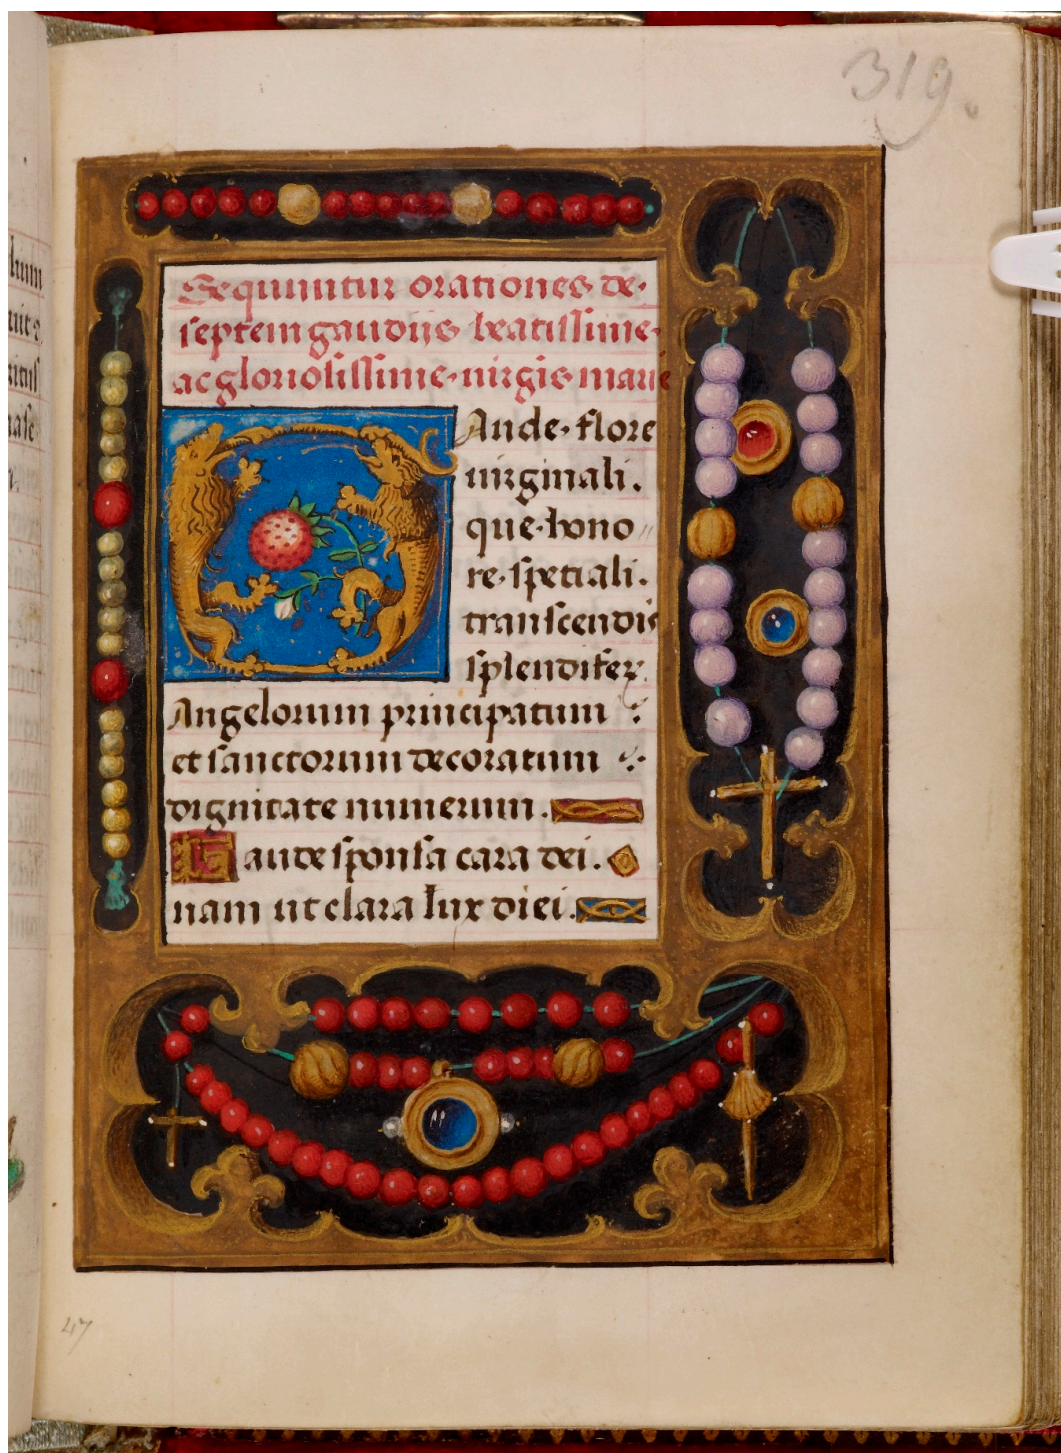 319.
Sequuntur orationes de·
septem gaudijs beatissime·
ac gloriosissime·uirgis marie
Gaude·flore
uirginali.
que·hono〃
re·spetiali.
transcendis
splendifer.
Angelorum principatum
et sanctorum decoratum
dignitate numerum.
Gaude sponsa cara dei.
nam ut clara lux diei.
47